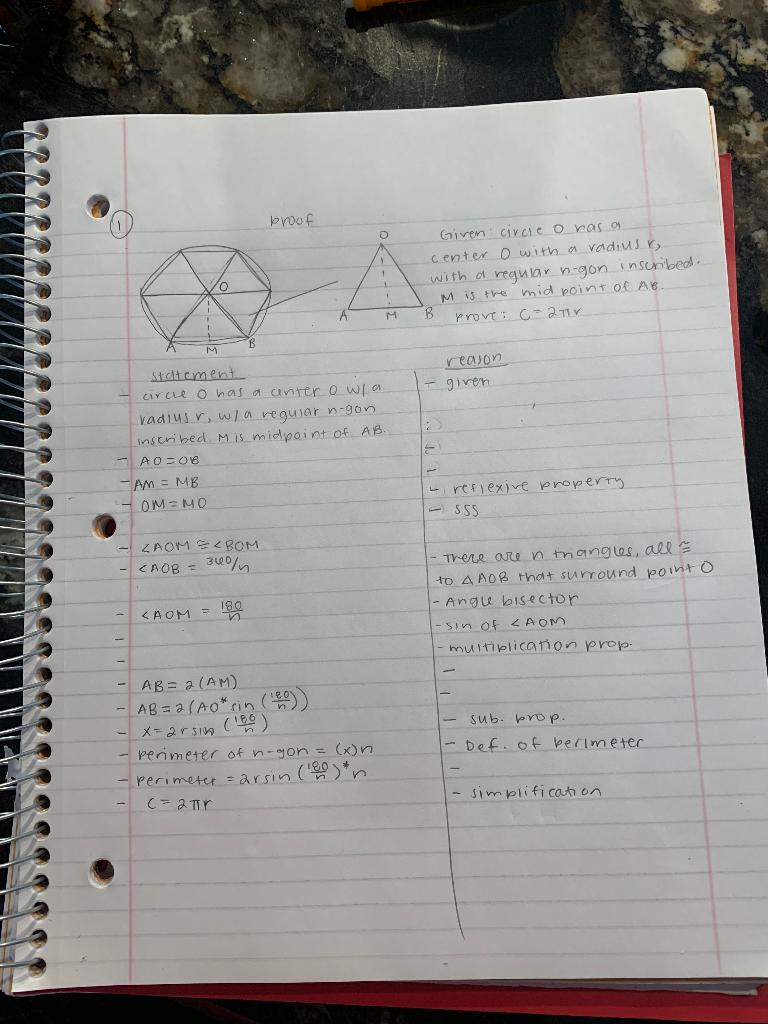 1
proof
O
A M B
O
A M B
Given: circle O has a
center O with a radius r,
with a regular n-gon inscribed.
M is the midpoint of AB.
Prove: C = 2πr
statement
- circle O has a center O w/ a
radius r, w/ a regular n-gon
inscribed. M is midpoint of AB.
- AO = OB
- AM = MB
- OM = MO
- <AOM ≅ <BOM
- <AOB = 360/n
- <AOM = 180/n
-
-
- AB = 2(AM)
- AB = 2(AO * sin (180/n))
- x = 2r sin (180/n)
- perimeter of n-gon = (x)n
- perimeter = 2rsin (180/n) * n
- C = 2πr
reason
- given
-
-
-
- reflexive property
- SSS
- There are n triangles, all ≅
to △AOB that surround point O
- Angle bisector
- sin of <AOM
- multiplication prop.
-
-
- sub. prop.
- Def. of perimeter
-
- simplification